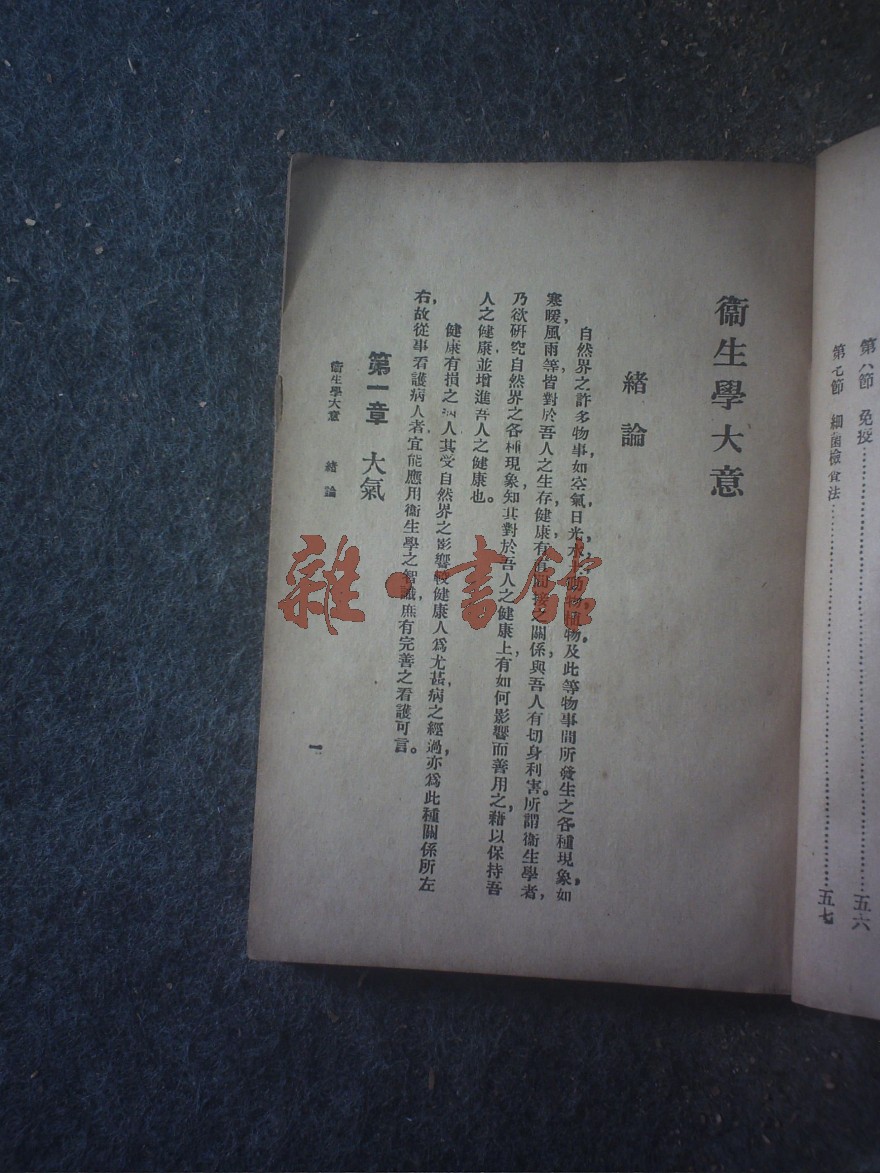 第六節 免疫……五六
第七節 細菌檢查法……五七
衞生學大意
緒論
自然界之許多物事,如空氣,日光,水,土,動物,植物及此等物事間所發生之各種現象,如
寒暖,風雨等,皆對於吾人之生存,健康,有直間接之關係,與吾人有切身利害。所謂衞生學者,
乃欲研究自然界之各種現象,知其對於吾人之健康上有如何影響,而善用之,藉以保持吾
人之健康,並增進吾人之健康也。
健康有損之病人,其受自然界之影響,較健康人爲尤甚,病之經過,亦爲此種關係所左
右,故從事看護病人者,宜能應用衞生學之智識,庶有完善之看護可言。
第一章 大氣
衞生學大意 緒論
一
雜·書館